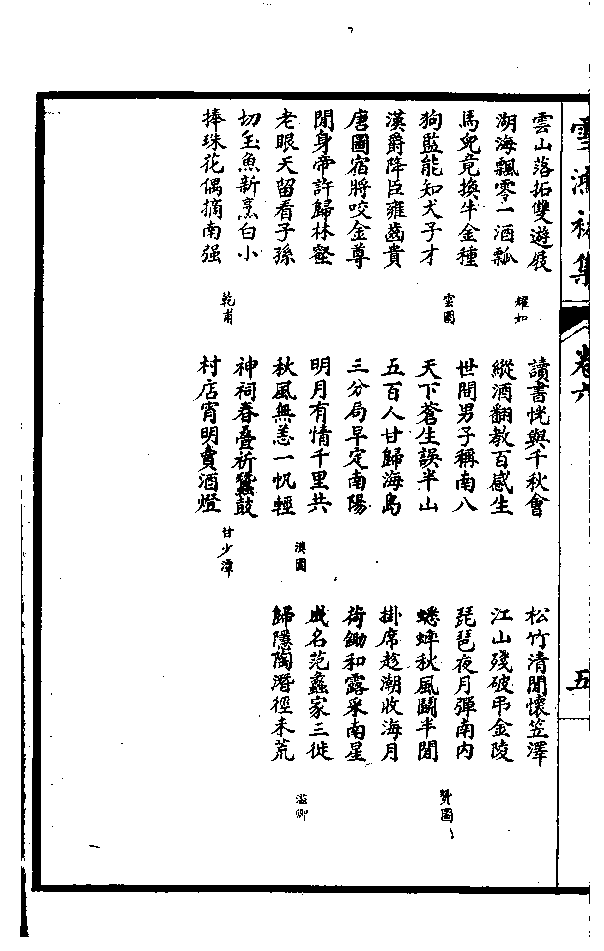 雪鴻初集
卷六
五
雲山落拓雙遊屐
湖海飄零一酒瓢
耀如
讀書恍與千秋會
縱酒翻教百感生
松竹清閒懷笠澤
江山殘破弔金陵
馬兒竟換牛金種
狗監能知犬子才
雲圖
世間男子稱南八
天下蒼生誤半山
琵琶夜月彈南内
蟋蟀秋風鬭半閒
贊圖
漢爵降臣雍齒貴
唐圖宿將咬金尊
五百人甘歸海島
三分局早定南陽
掛席趁潮收海月
荷鋤和露采南星
閒身帝許歸林壑
老眼天留看子孫
明月有情千里共
秋風無恙一帆輕
成名范蠡家三徙
歸隱陶潛徑未荒
溢卿
切玉魚新烹白小
捧珠花偶摘南强
乾甫
神祠春疊祈蠶鼓
村店宵明賣酒燈
甘少潭